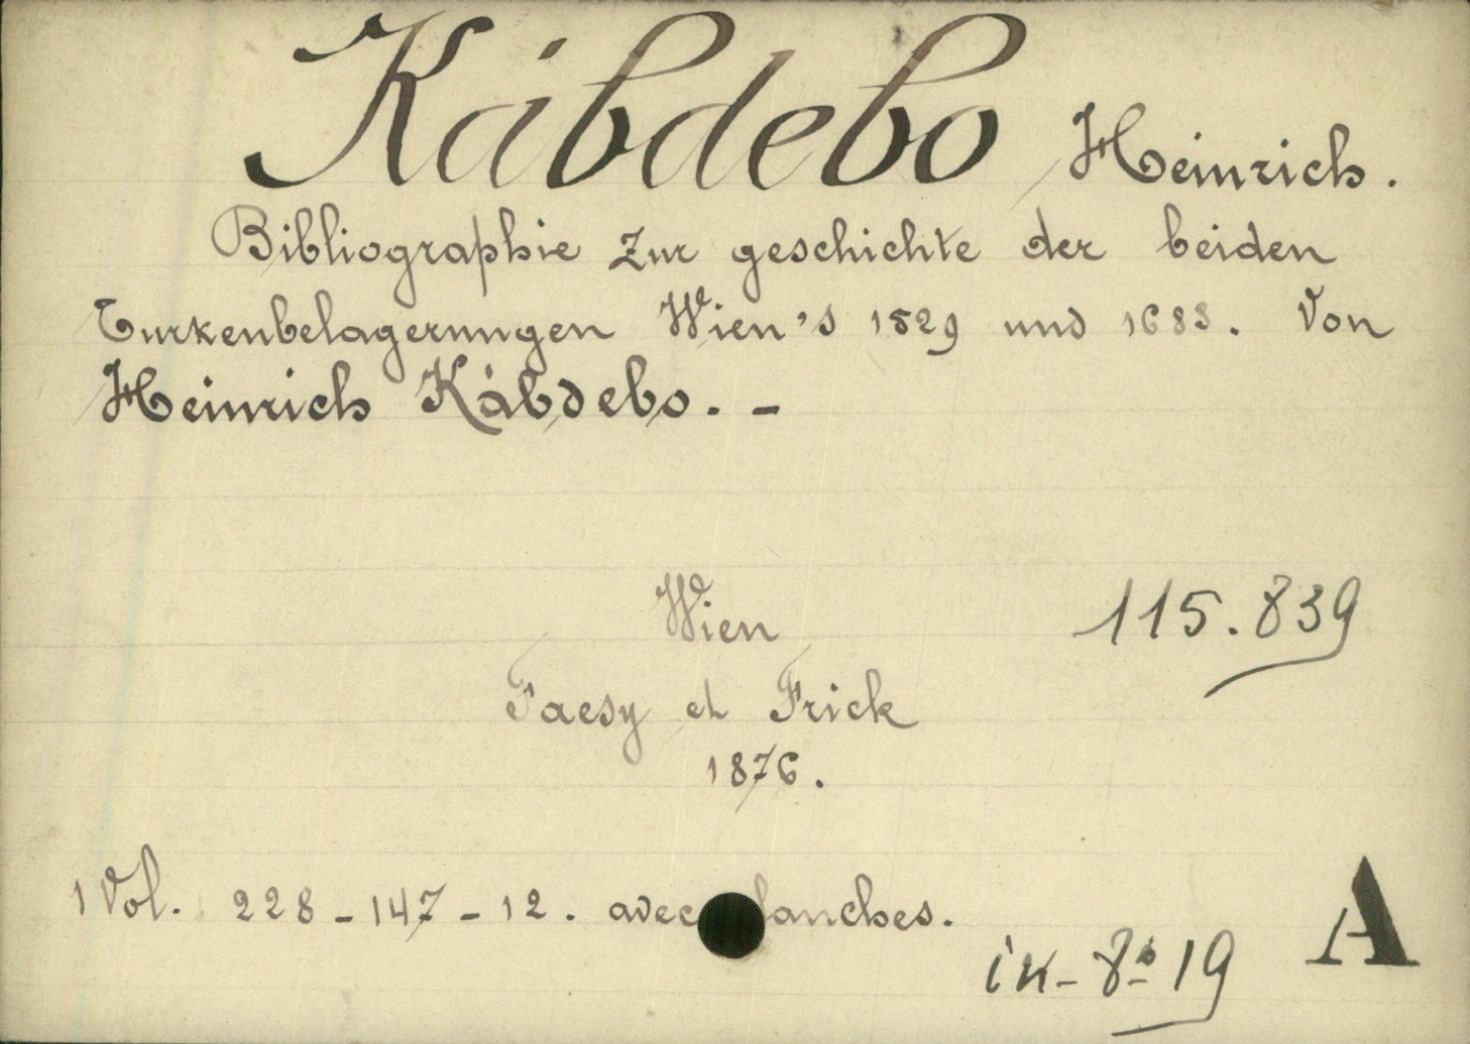 Kábdebo Heinrich.
Bibliographie zur geschichte der beiden
Turkenbelagerungen Wien's 1529 und 1683. Von
Heinrich Kábdebo. -
Wien
115.839
Faesy et Frick
1876.
1 Vol. 228-147-12. avec lanches.
in-8° 19
A